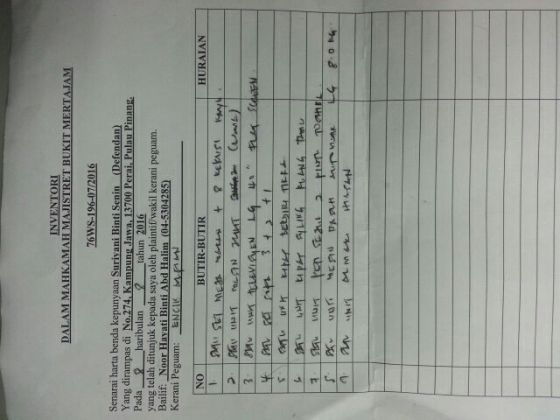 INVENTORI
DALAM MAHKAMAH MAJISTRET BUKIT MERTAJAM
76WS-196-07/2016
Senarai harta benda kepunyaan Suriyani Binti Senin (Defendan)
Yang dirampas di No.274, Kampung Jawa, 13700 Perai, Pulau Pinang.
Pada 8 haribulan 8 tahun 2016
yang telah ditunjuk kepada saya oleh plaintif/wakil kerani peguam.
Bailif: Noor Hayati Binti Abd Halim (04-5304285)
Kerani Peguam: ENCIK
NO BUTIR-BUTIR HURAIAN
1. SATU SET MEJA MAKAN + 8 KERUSI KAYU
2. SATU UNIT MESIN JAHIT
3. SATU UNIT TELEVISYEN LG 40" FLAT SCREEN
4. SATU SET SOFA 3 + 2 + 1
5. SATU UNIT KIPAS BERDIRI
6. SATU UNIT KIPAS SILING
7. SATU UNIT PETI SEJUK 2 PINTU TOSHIBA
8. SATU UNIT MESIN BASUH LG 8.0 KG
9. SATU UNIT